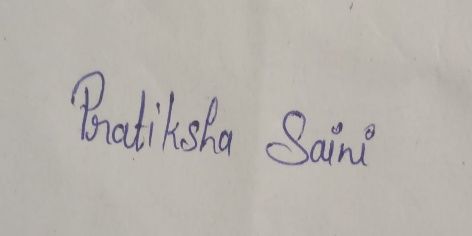 Pratiksha Saini